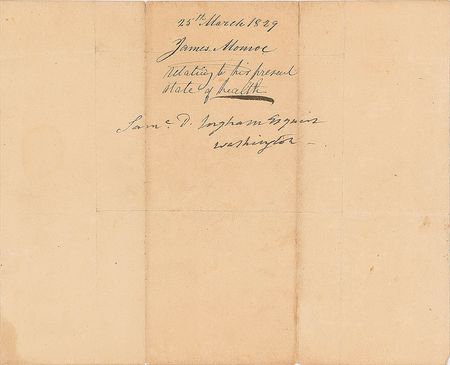 25th March 1829
James Monroe
relating to his present
state of health
Saml. D. Ingham Esquire
Washington –